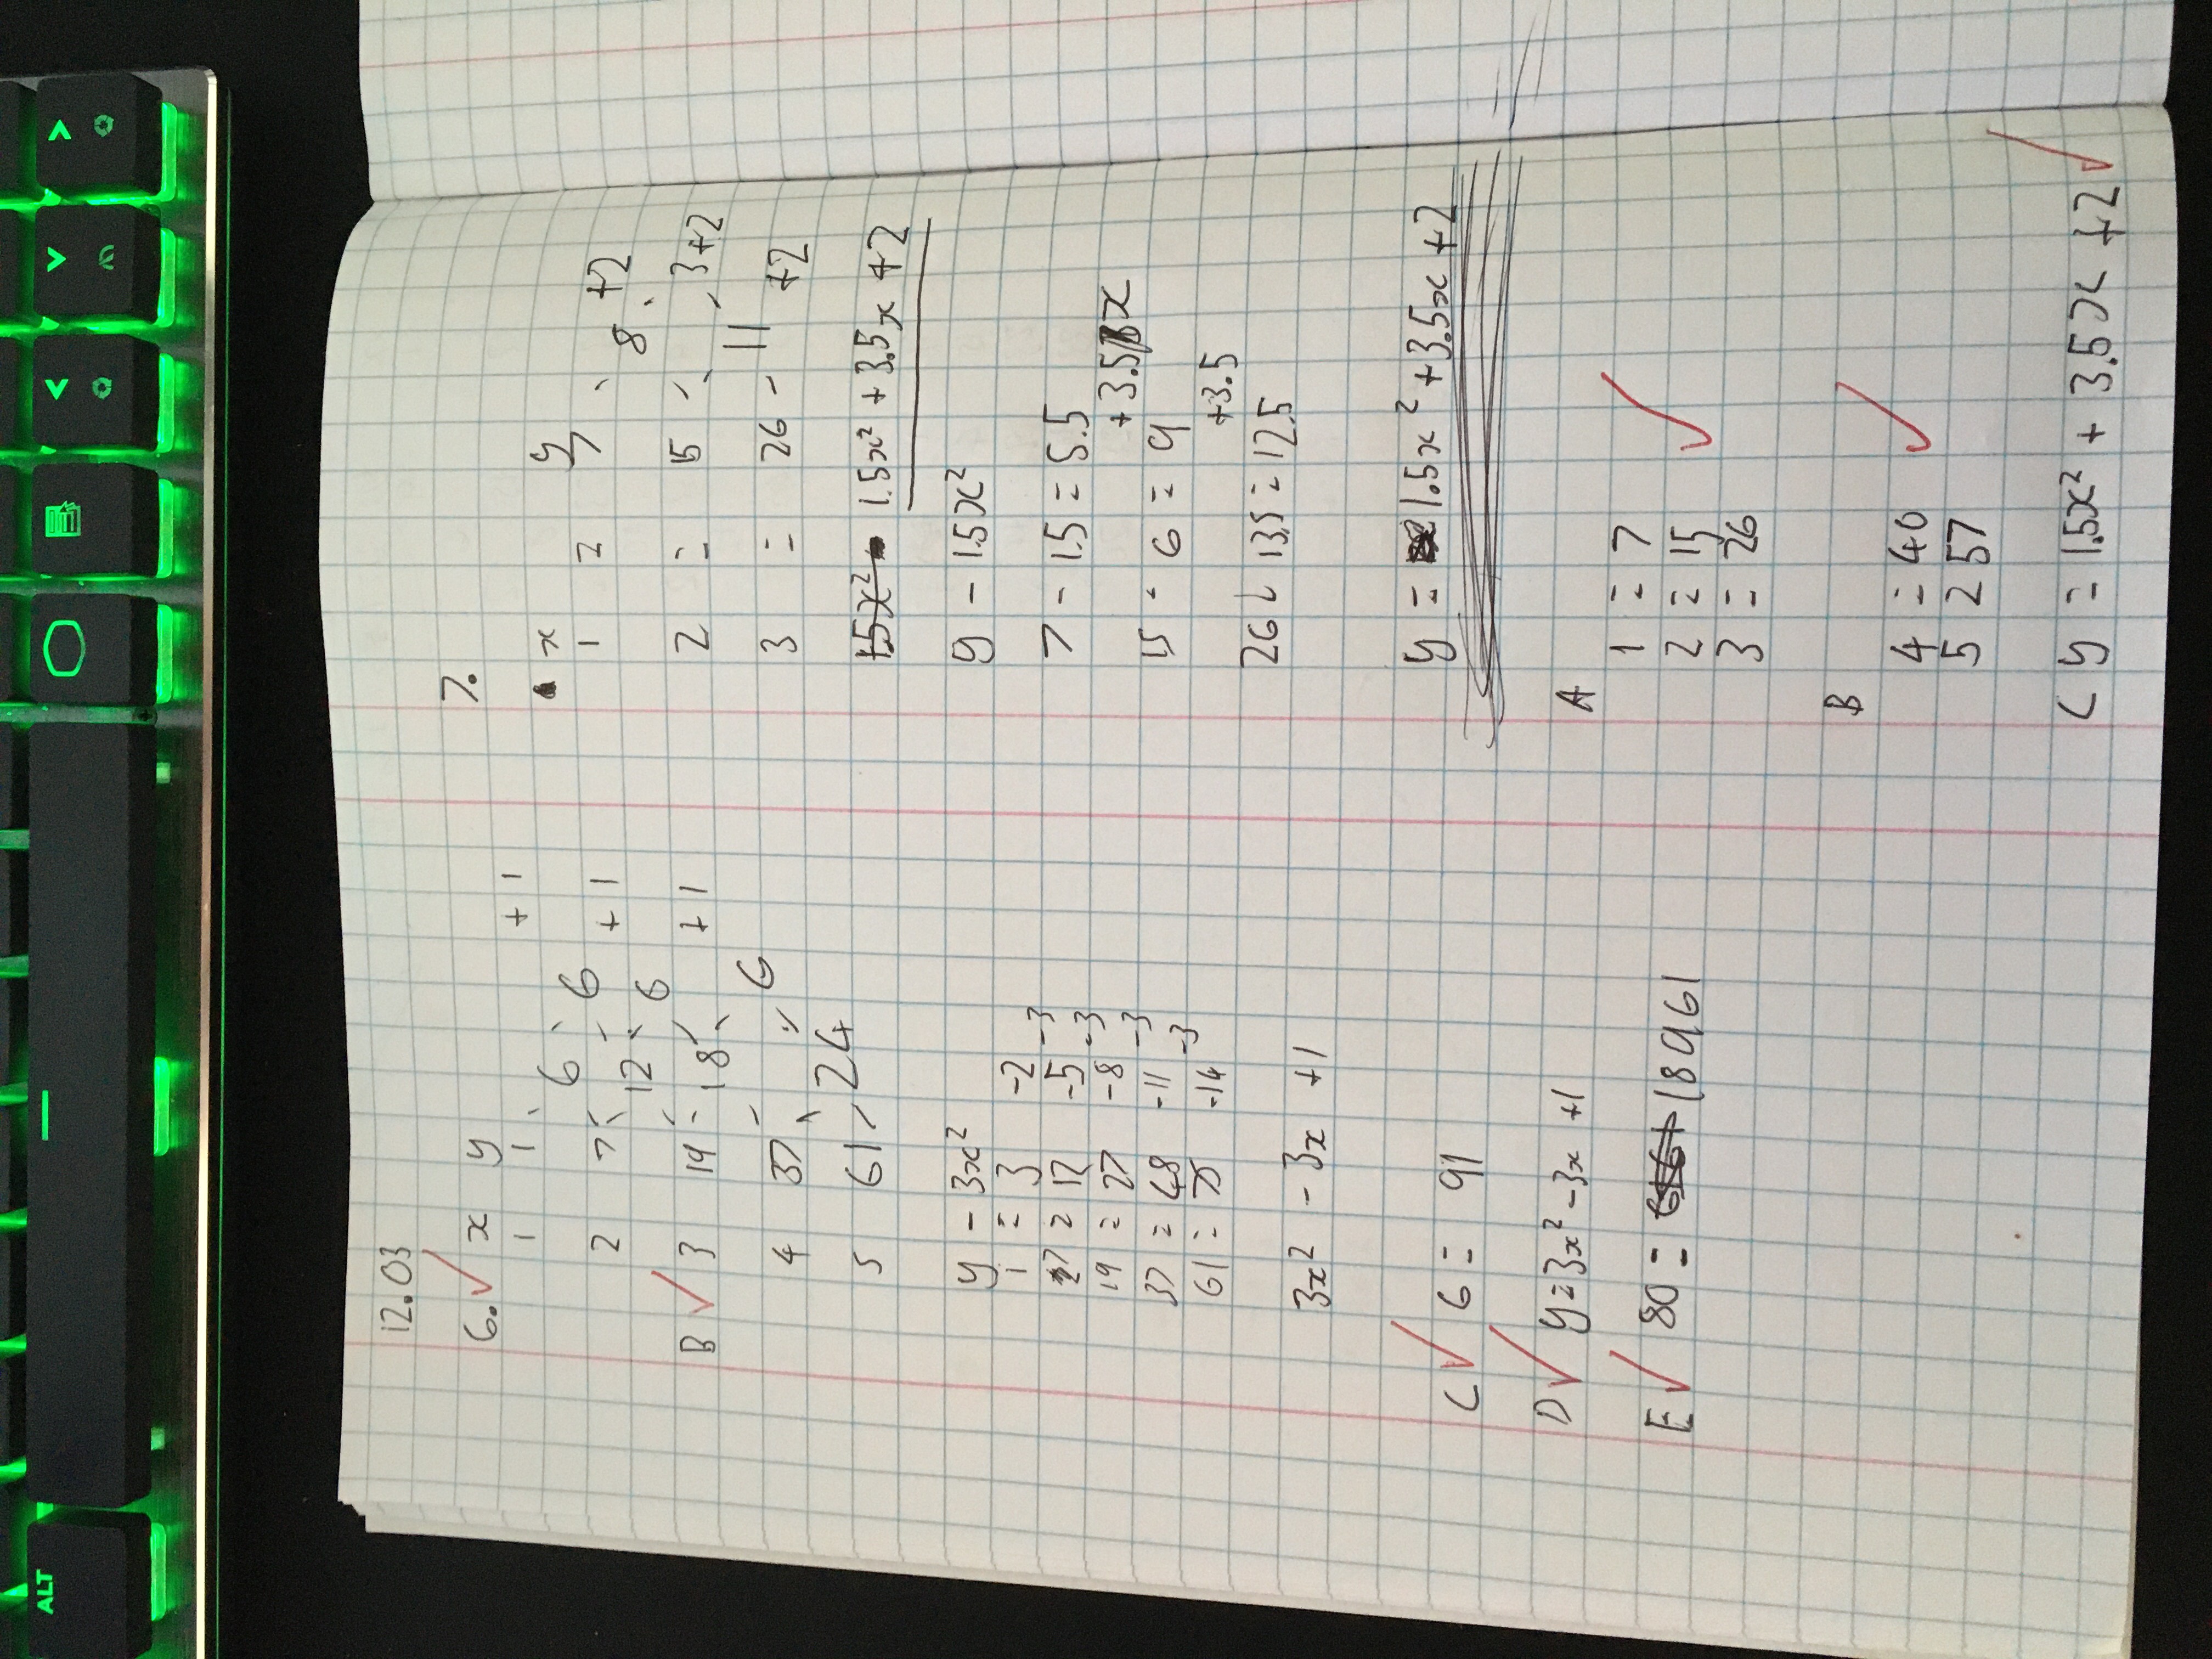 ALT
12.03
6. x y
1 1 +1
6 6
2 7 +1
12 6
B 3 19 +1
18
4 37 6
24
5 61
y - 3x²
1 = 3 -2
-3
7 = 12 -5
-3
19 = 27 -8
-3
37 = 48 -11
-3
61 = 75 -14
3x² - 3x +1
C 6 = 91
D y=3x² -3x +1
E 80 = 18961
7.
x y
1 = 7 +2
8
2 = 15 3+2
11
3 = 26 +2
1.5x² 1.5x² +3.5x +2
y - 1.5x²
7 - 1.5 = 5.5
+3.5x
15 - 6 = 9
+3.5
26 - 13.5 = 12.5
y = 1.5x² +3.5x +2
A
1 = 7
2 = 15
3 = 26
B
4 = 40
5 = 57
C y = 1.5x² + 3.5x +2